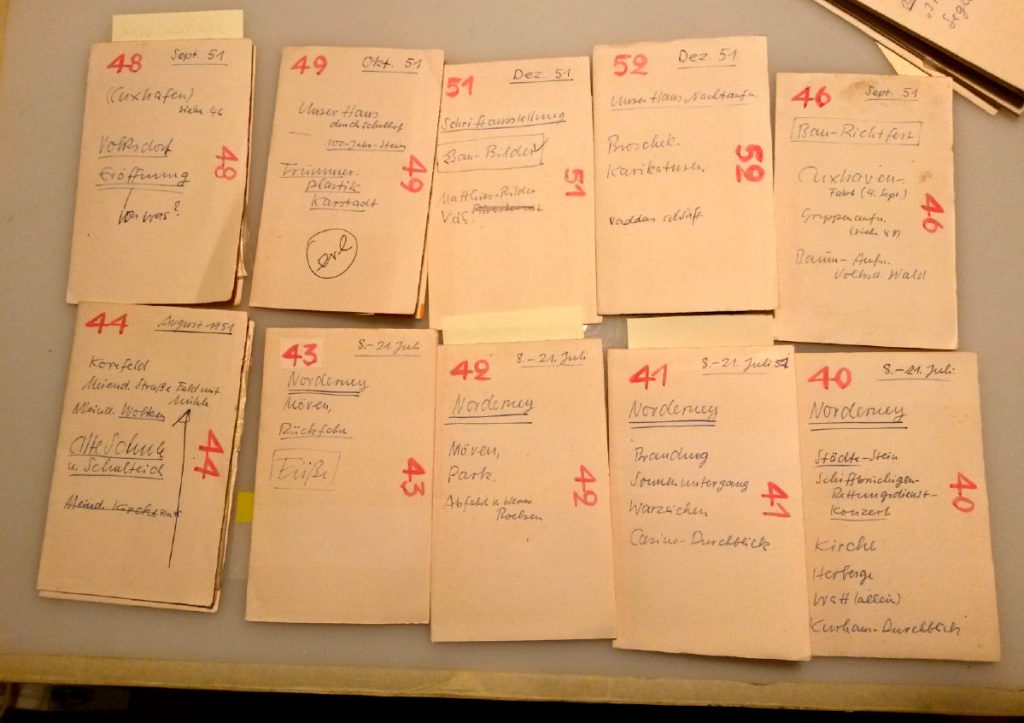 48
Sept. 51
(Cuxhafen)
siehe 46
Volksdorf
Eröffnung
von was?
48
49
Okt. 51
Unser Haus
durch Schulhof
100-Jahr-Stein
Trümmer-
plastik
Karstadt
erl
49
51
Dez. 51
Schriftausstellung
Bau-Bilder
Matthies-Bilder
VdG.
51
52
Dez. 51
Unser Haus, Nachtaufn.
Broschek-
Karikaturen
Vaddas schläft
52
46
Sept. 51
Bau-Richtfest
Cuxhaven-
Fahrt (4. Sept.)
Gruppenaufn.
(siehe 48)
Baum-Aufn.
Volksd. Wald
46
44
August 1951
Kornfeld
Meiend. Straße Feld mit
Mühle
Meiend. Wolken
Alte Schule
u Schulteich
Meiend. Kirche
44
43
8.-21. Juli
Norderney
Möven,
Rückfahr
Füße
43
42
8.-21. Juli
Norderney
Möven,
Park.
Abfahrt v. Werner
42
41
8.-21. Juli 51
Norderney
Brandung
Sonnenuntergang
Warzeichen
Casino-Durchblick
41
40
8.-21. Juli
Norderney
Städte-Stein
Schiffbrüchigen-
Rettungsdienst-
Konzert
Kirche
Herberge
Watt (allein)
Kurhaus-Durchblick
40